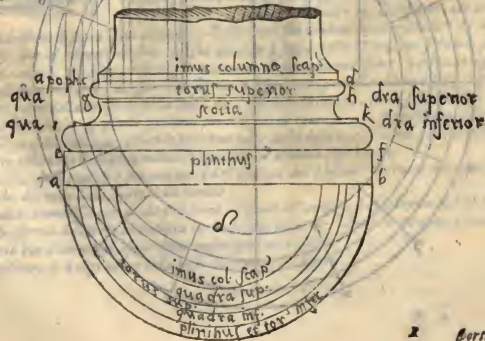 imus columnæ scap⁹
apoph. c d
torus superior
quа dra superior
g h
scotia
qua dra inferior
i k
e f
plinthus
a b
imus col. scap⁹
quadra sup.
torus sup.
quadra inf.
plinthus et tor⁹ infer